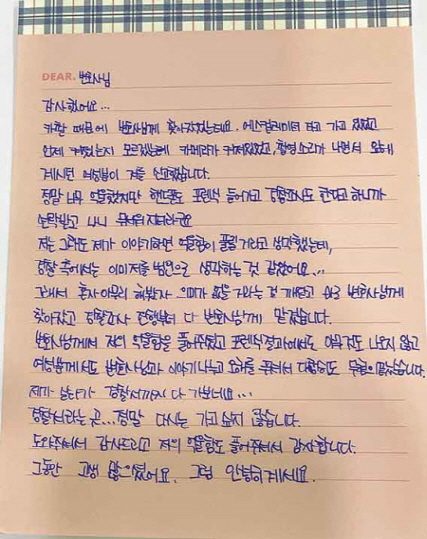 DEAR. 변호사님
감사했어요...
카촬 때문에 변호사님께 찾아갔었는데요. 에스컬레이터 타고 가고 있었고
언제 켜졌는지 모르겠는데 카메라가 켜져있었고, 촬영소리가 나면서 위에
계시던 여성분이 저를 신고했습니다.
정말 너무 억울했지만 핸드폰도 포렌식 들어가고 경찰조사도 한다고 하니까
연락받고 나니 무서워지더라구요
저는 그래도 제가 이야기하면 억울함이 풀릴 거라고 생각했는데,
경찰 측에서는 이미 저를 범인으로 생각하는 것 같았어요...
그래서 혼자 아무리 해봤자 의미가 없을 거라는 걸 깨닫고 바로 변호사님께
찾아갔고 경찰조사 진행부터 다 변호사님께 맡겼습니다.
변호사님께서 저의 억울함을 풀어주셨고 포렌식 결과에서도 아무것도 나오지 않고
여성분께서도 변호사님과 이야기 나누고 오해를 풀셔서 다행히도 무혐의 끝났습니다.
제가 살다가 경찰서까지 다 가보네요...
경찰서라는 곳... 정말 다시는 가고 싶지 않습니다.
도와주셔서 감사드리고 저의 억울함도 풀어주셔서 감사합니다.
그동안 고생 많으셨어요. 그럼 안녕히계세요.